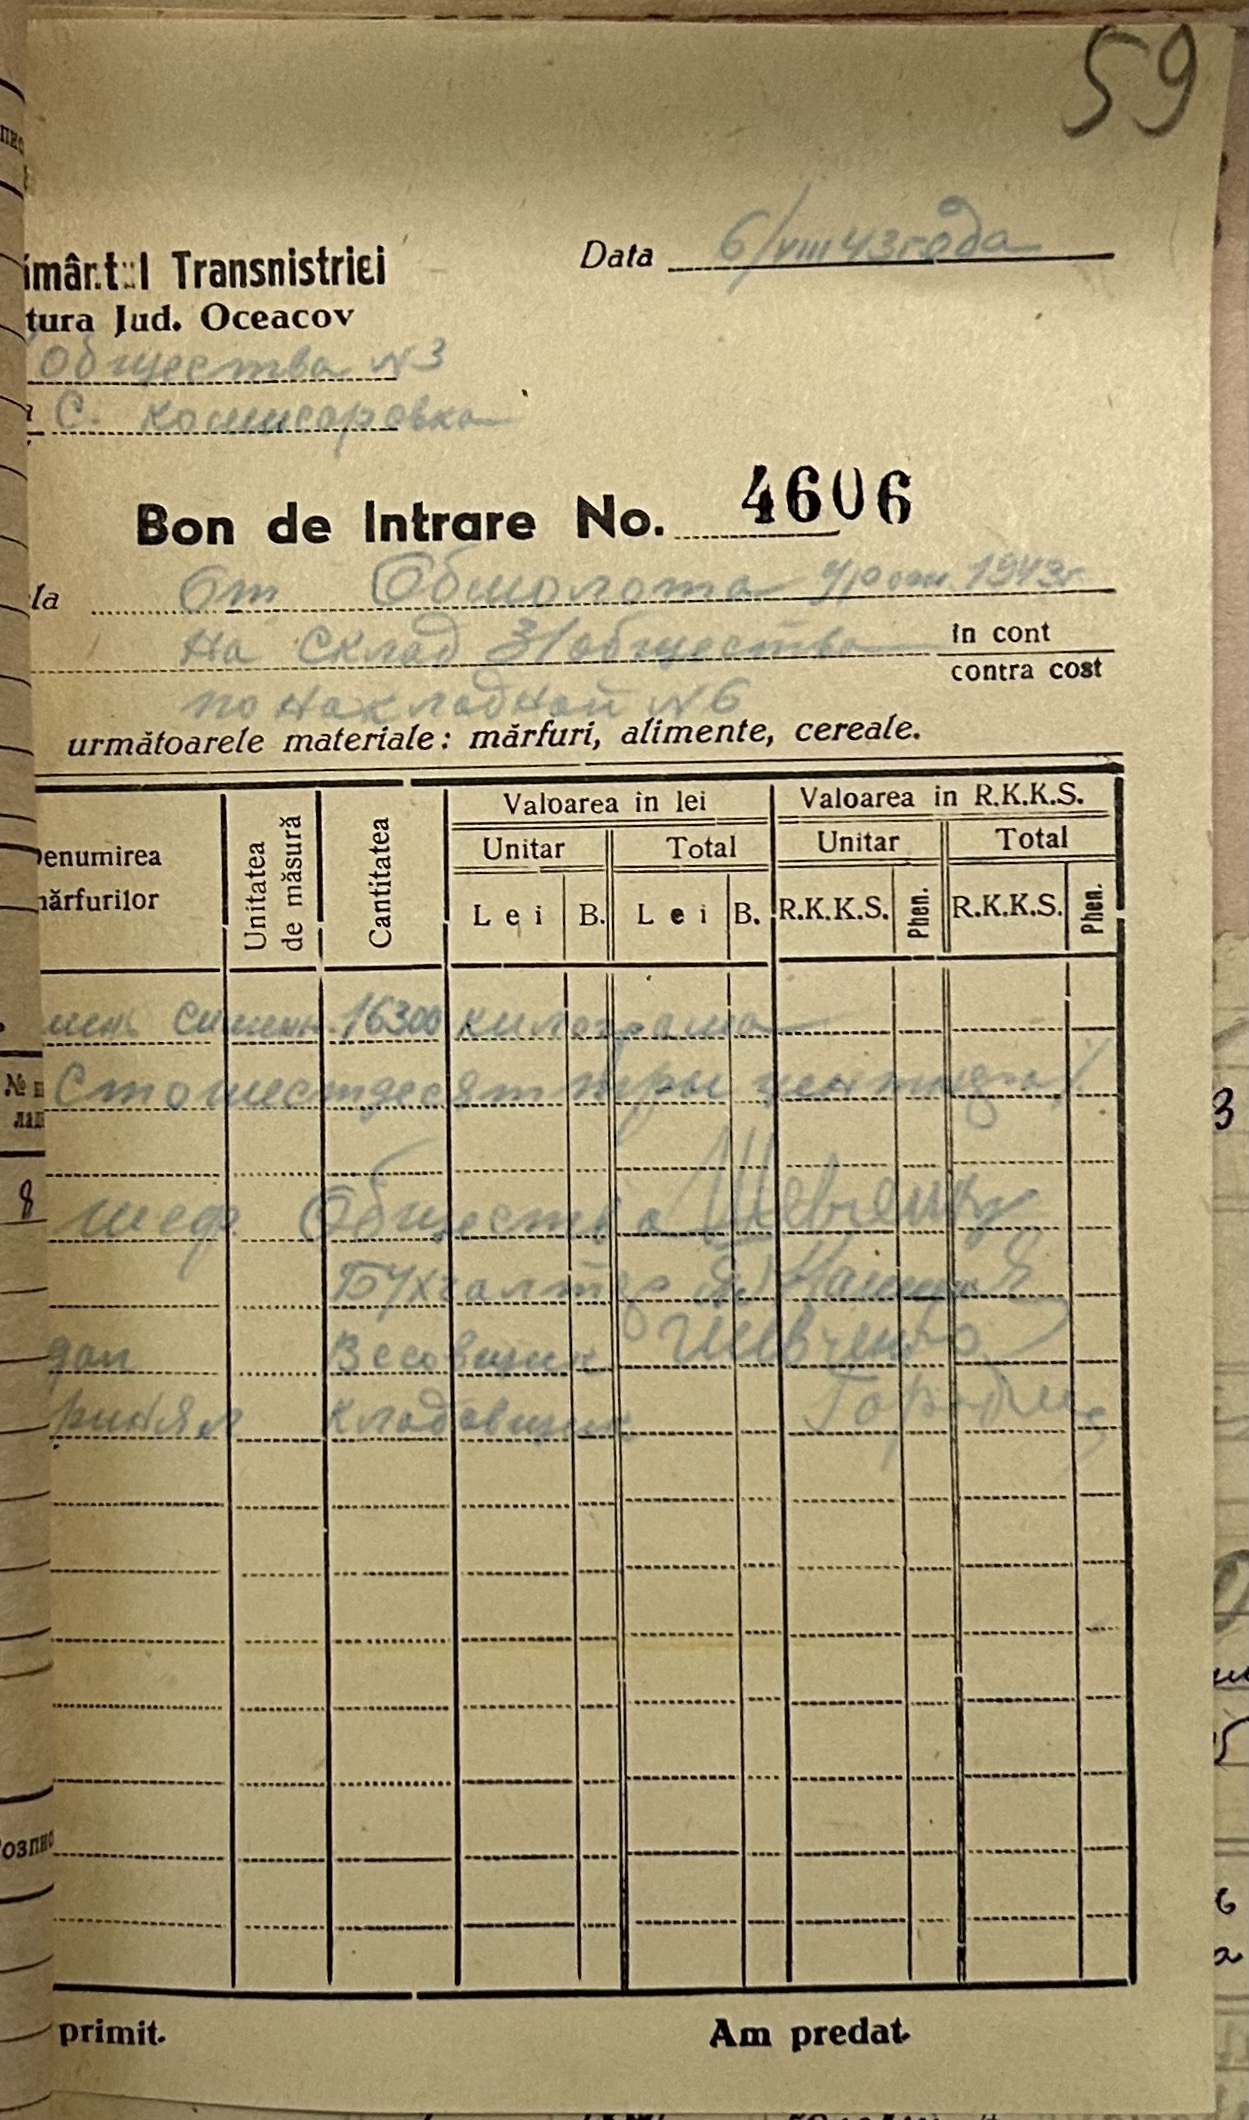 59
ământul Transnistriei
Data 6/VIII 43 года
tura Jud. Oceacov
Общества N3
С. Комисаровка
Bon de Intrare No. 4606
la От Обмолота урож 1943г
На Склад 3/общества in cont
contra cost
по Накладной N6
următoarele materiale: mărfuri, alimente, cereale.
Denumirea mărfurilor Unitatea de măsură Cantitatea Valoarea in lei Valoarea in R.K.K.S.
Unitar Total Unitar Total
Lei B. Lei B. R.K.K.S. Phen. R.K.K.S. Phen.
мень 16300 килограма
Сто шестдесят три
шеф Общества Шевченко
Бухгалтер
дал Весовщик Шевченко
ринял Кладовщик
primit. Am predat.
№
8
3